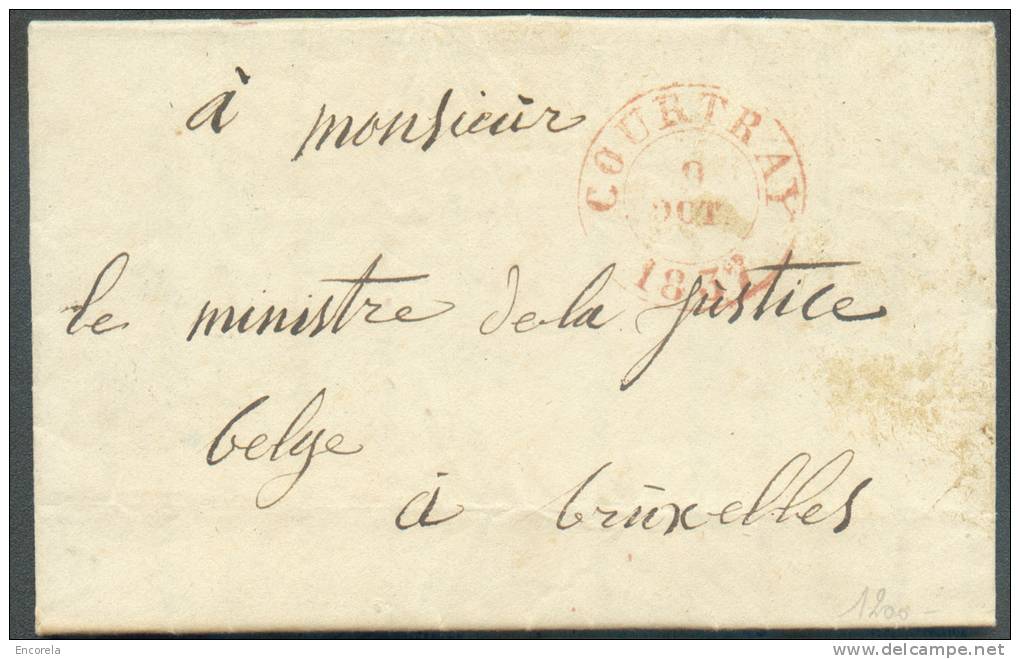 à monsieur
COURTRAY
9
OCT.
le ministre de la justice
belge
à bruxelles
1200-
Encorela
www.delcampe.net